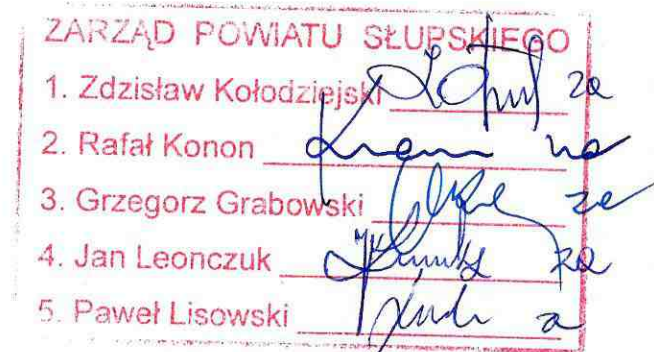 ZARZĄD POWIATU SŁUPSKIEGO
1. Zdzisław Kołodziejski za
2. Rafał Konon
3. Grzegorz Grabowski za
4. Jan Leonczuk za
5. Paweł Lisowski